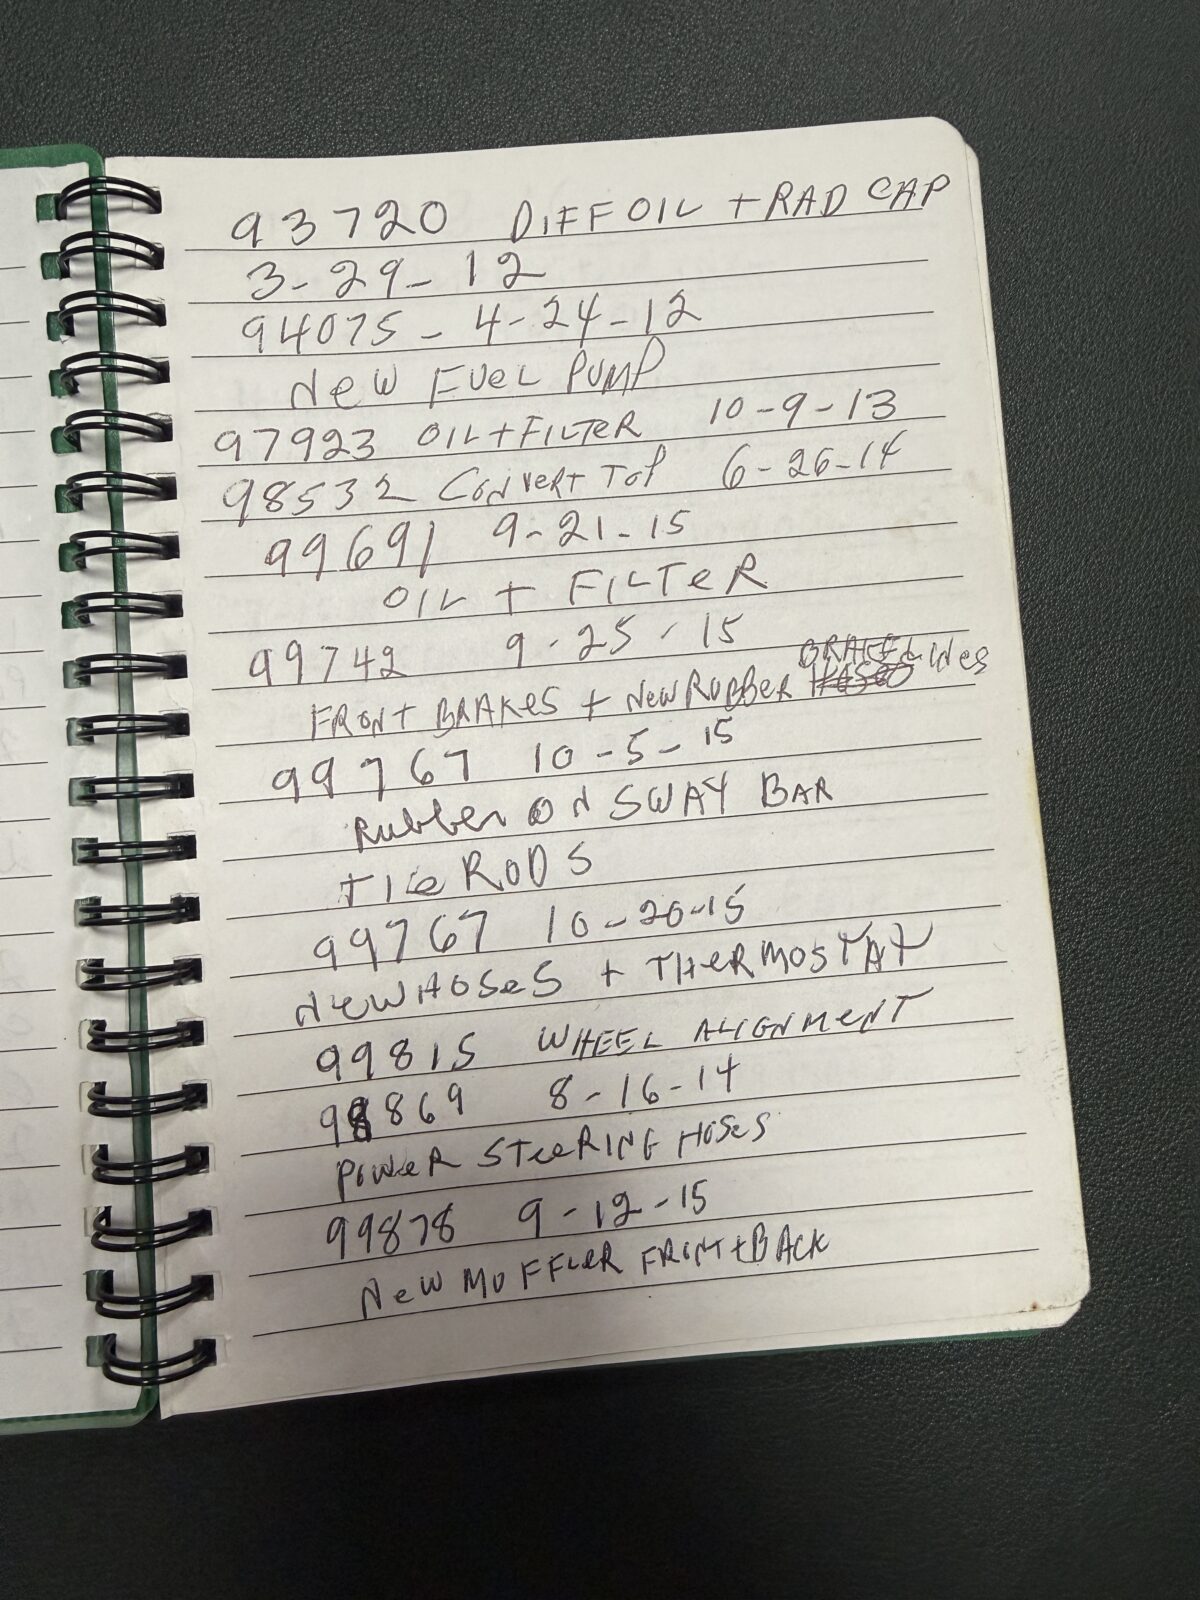 93720 DIFF OIL + RAD CAP
3-29-12
94075 - 4-24-12
NeW FUeL PUMP
97923 OIL + FILTeR 10-9-13
98532 ConverT ToP 6-26-14
99691 9-21-15
OIL + FILTeR
99742 9-25-15
FRONT BRAKeS + NeW RUBBeR BRAKE LINeS
99767 10-5-15
Rubber ON SWAY BAR
TIe RODS
99767 10-20-15
NeW HOSeS + THeRMOSTAT
99815 WHEEL ALIGNMeNT
99869 8-16-14
POWeR STeeRING HOSeS
99878 9-12-15
NeW MUFFLeR FRONT + BACK